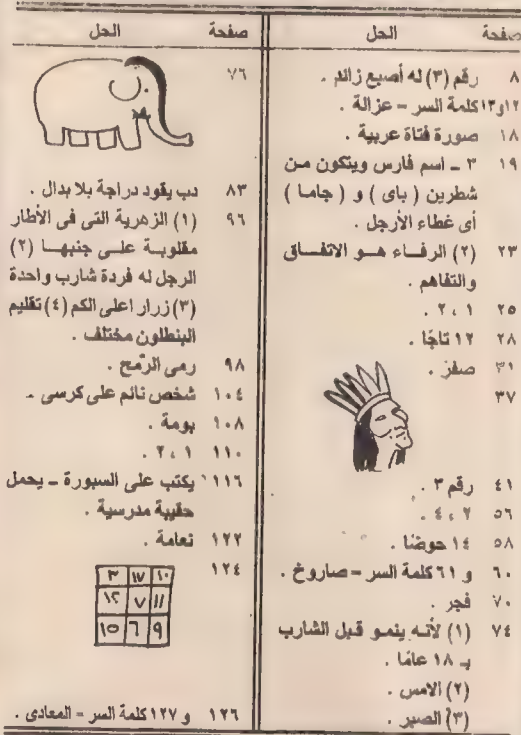 صفحة الحل
٨ رقم (٣) له أصبع زائد .
١٢و١٣ كلمة السر = عزالة .
١٨ صورة فتاة عربية .
١٩ ٣ ـ اسم فارس ويتكون من
شطرين ( باى ) و ( جاما )
أى غطاء الأرجل .
٢٣ (٢) الرفاء هو الاتفاق
والتفاهم .
٢٥ ١ ، ٢ .
٢٨ ١٢ تاجًا .
٣١ صفر .
٣٧
٤١ رقم ٣ .
٥٦ ٢ ، ٤ .
٥٨ ١٤ حوضًا .
٦٠ و ٦١ كلمة السر = صاروخ .
٧٠ فجر .
٧٤ (١) لأنه ينمو قبل الشارب
بـ ١٨ عامًا .
(٢) الامس .
(٣) الصبر .
صفحة الحل
٧٦
٨٣ دب يقود دراجة بلا بدال .
٩٦ (١) الزهرية التى فى الأطار
مقلوبة على جنبها (٢)
الرجل له فردة شارب واحدة
(٣) زرار اعلى الكم (٤) تقليم
البنطلون مختلف .
٩٨ رمى الرمح .
١٠٤ شخص نائم على كرسى .
١٠٨ بومة .
١١٠ ١ ، ٢ .
١١٦ يكتب على السبورة ـ يحمل
حقيبة مدرسية .
١٢٢ نعامة .
١٢٤
٣ ١٧ ١٠
١٢ ٧ ١١
١٥ ٦ ٩
١٢٦ و ١٢٧ كلمة السر = المعادى .